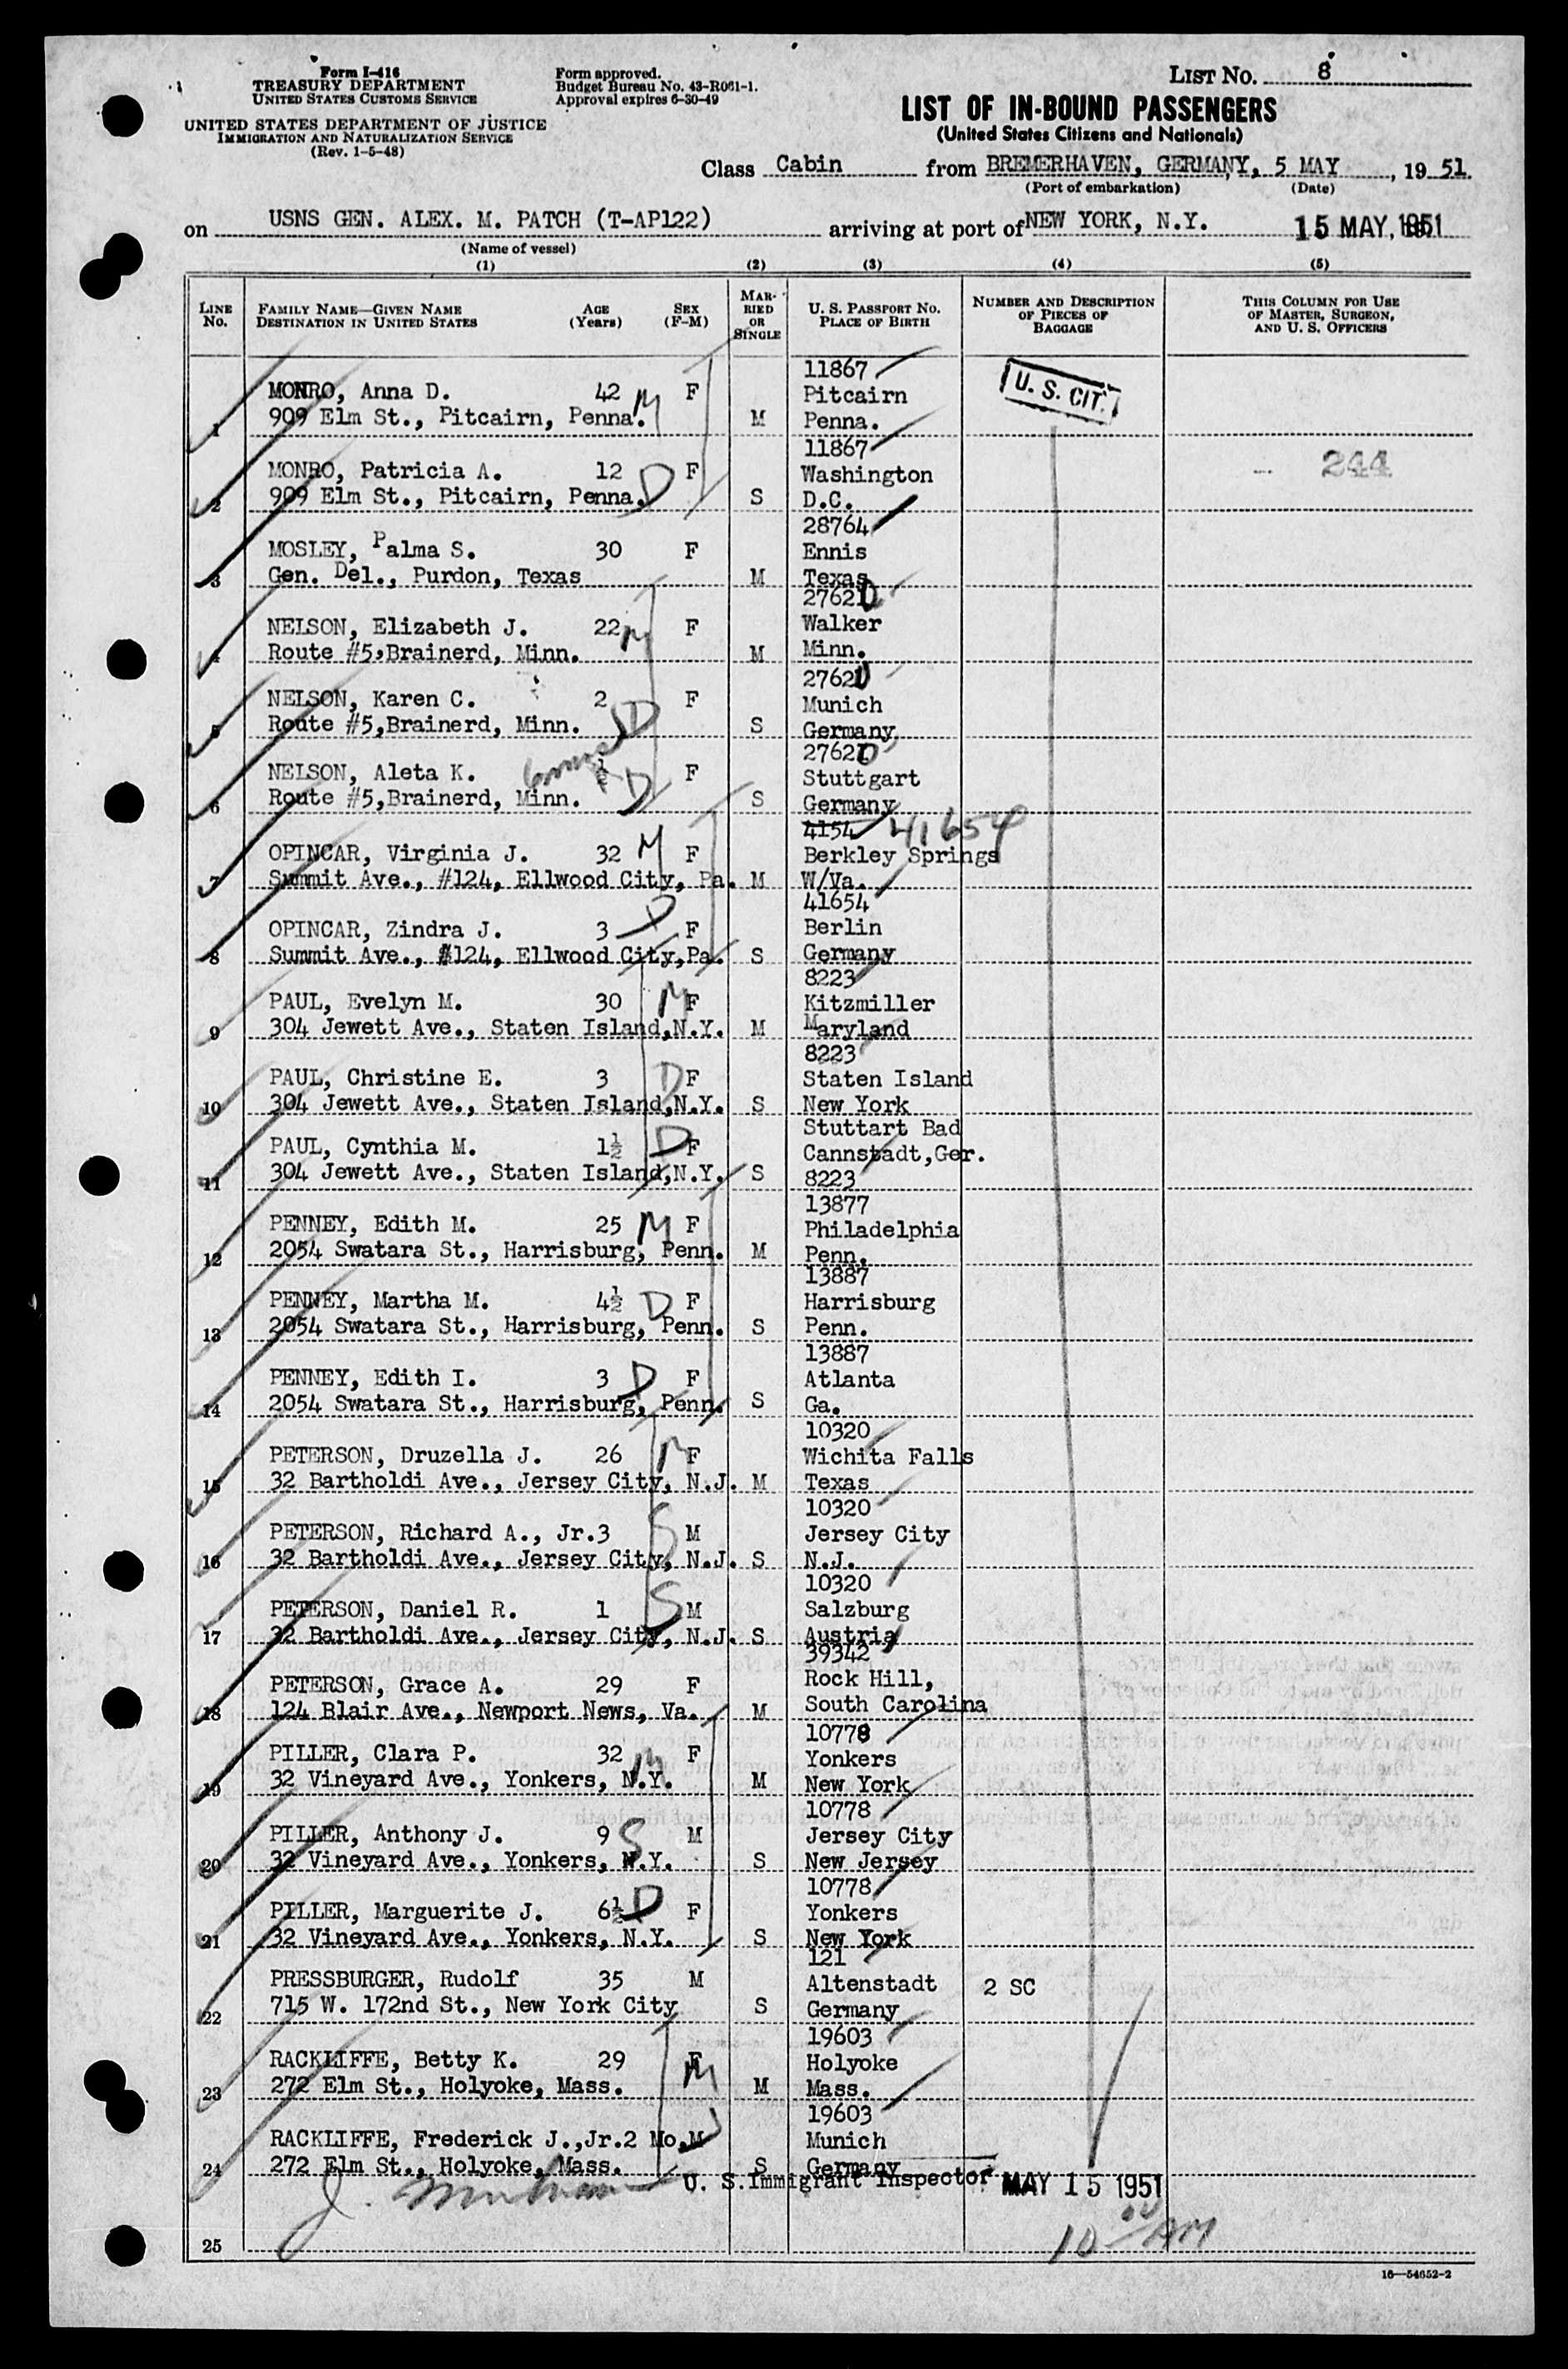 Form I-416
TREASURY DEPARTMENT
UNITED STATES CUSTOMS SERVICE
UNITED STATES DEPARTMENT OF JUSTICE
IMMIGRATION AND NATURALIZATION SERVICE
(Rev. 1-5-48)
Form approved.
Budget Bureau No. 43-R061-1.
Approval expires 6-30-49
LIST No. 8
LIST OF IN-BOUND PASSENGERS
(United States Citizens and Nationals)
Class Cabin from BREMERHAVEN, GERMANY, 5 MAY, 19 51
(Port of embarkation) (Date)
on USNS GEN. ALEX. M. PATCH (T-AP122) arriving at port of NEW YORK, N.Y. 15 MAY, 1951
(Name of vessel)
(1) (2) (3) (4) (5)
LINE No. FAMILY NAME—GIVEN NAME DESTINATION IN UNITED STATES AGE (Years) SEX (F-M) MARRIED OR SINGLE U. S. PASSPORT NO. PLACE OF BIRTH NUMBER AND DESCRIPTION OF PIECES OF BAGGAGE THIS COLUMN FOR USE OF MASTER, SURGEON, AND U. S. OFFICERS
11867
MONRO, Anna D. 42 M F Pitcairn U. S. CIT.
1 909 Elm St., Pitcairn, Penna. M Penna.
11867
MONRO, Patricia A. 12 D F Washington 244
2 909 Elm St., Pitcairn, Penna. S D.C.
28764
MOSLEY, Palma S. 30 F Ennis
3 Gen. Del., Purdon, Texas M Texas
27621
NELSON, Elizabeth J. 22 M F Walker
4 Route #5,Brainerd, Minn. M Minn.
27621
NELSON, Karen C. 2 D F Munich
5 Route #5,Brainerd, Minn. S Germany
27621
NELSON, Aleta K. ½ D F Stuttgart
6 Route #5,Brainerd, Minn. S Germany
4154 41654
OPINCAR, Virginia J. 32 M F Berkley Springs
7 Summit Ave., #124, Ellwood City, Pa. M W/Va.
41654
OPINCAR, Zindra J. 3 D F Berlin
8 Summit Ave., #124, Ellwood City,Pa. S Germany
8223
PAUL, Evelyn M. 30 M F Kitzmiller
9 304 Jewett Ave., Staten Island,N.Y. M Maryland
8223
PAUL, Christine E. 3 D F Staten Island
10 304 Jewett Ave., Staten Island,N.Y. S New York
Stuttart Bad
PAUL, Cynthia M. 1½ D F Cannstadt,Ger.
11 304 Jewett Ave., Staten Island,N.Y. S 8223
13877
PENNEY, Edith M. 25 M F Philadelphia
12 2054 Swatara St., Harrisburg, Penn. M Penn.
13887
PENNEY, Martha M. 4½ D F Harrisburg
13 2054 Swatara St., Harrisburg, Penn. S Penn.
13887
PENNEY, Edith I. 3 D F Atlanta
14 2054 Swatara St., Harrisburg, Penn. S Ga.
10320
PETERSON, Druzella J. 26 M F Wichita Falls
15 32 Bartholdi Ave., Jersey City, N.J. M Texas
10320
PETERSON, Richard A., Jr.3 S M Jersey City
16 32 Bartholdi Ave., Jersey City, N.J. S N.J.
10320
PETERSON, Daniel R. 1 S M Salzburg
17 32 Bartholdi Ave., Jersey City, N.J. S Austria
39342
PETERSON, Grace A. 29 F Rock Hill,
18 124 Blair Ave., Newport News, Va. M South Carolina
10778
PILLER, Clara P. 32 M F Yonkers
19 32 Vineyard Ave., Yonkers, N.Y. M New York
10778
PILLER, Anthony J. 9 S M Jersey City
20 32 Vineyard Ave., Yonkers, N.Y. S New Jersey
10778
PILLER, Marguerite J. 6½ D F Yonkers
21 32 Vineyard Ave., Yonkers, N.Y. S New York
121
PRESSBURGER, Rudolf 35 M Altenstadt 2 SC
22 715 W. 172nd St., New York City S Germany
19603
RACKLIFFE, Betty K. 29 F M Holyoke
23 272 Elm St., Holyoke, Mass. M Mass.
19603
RACKLIFFE, Frederick J.,Jr.2 Mo.M Munich
24 272 Elm St., Holyoke, Mass. S Germany
J. U. S. Immigrant Inspector MAY 15 1951
10 00 AM
25
16—54652-2